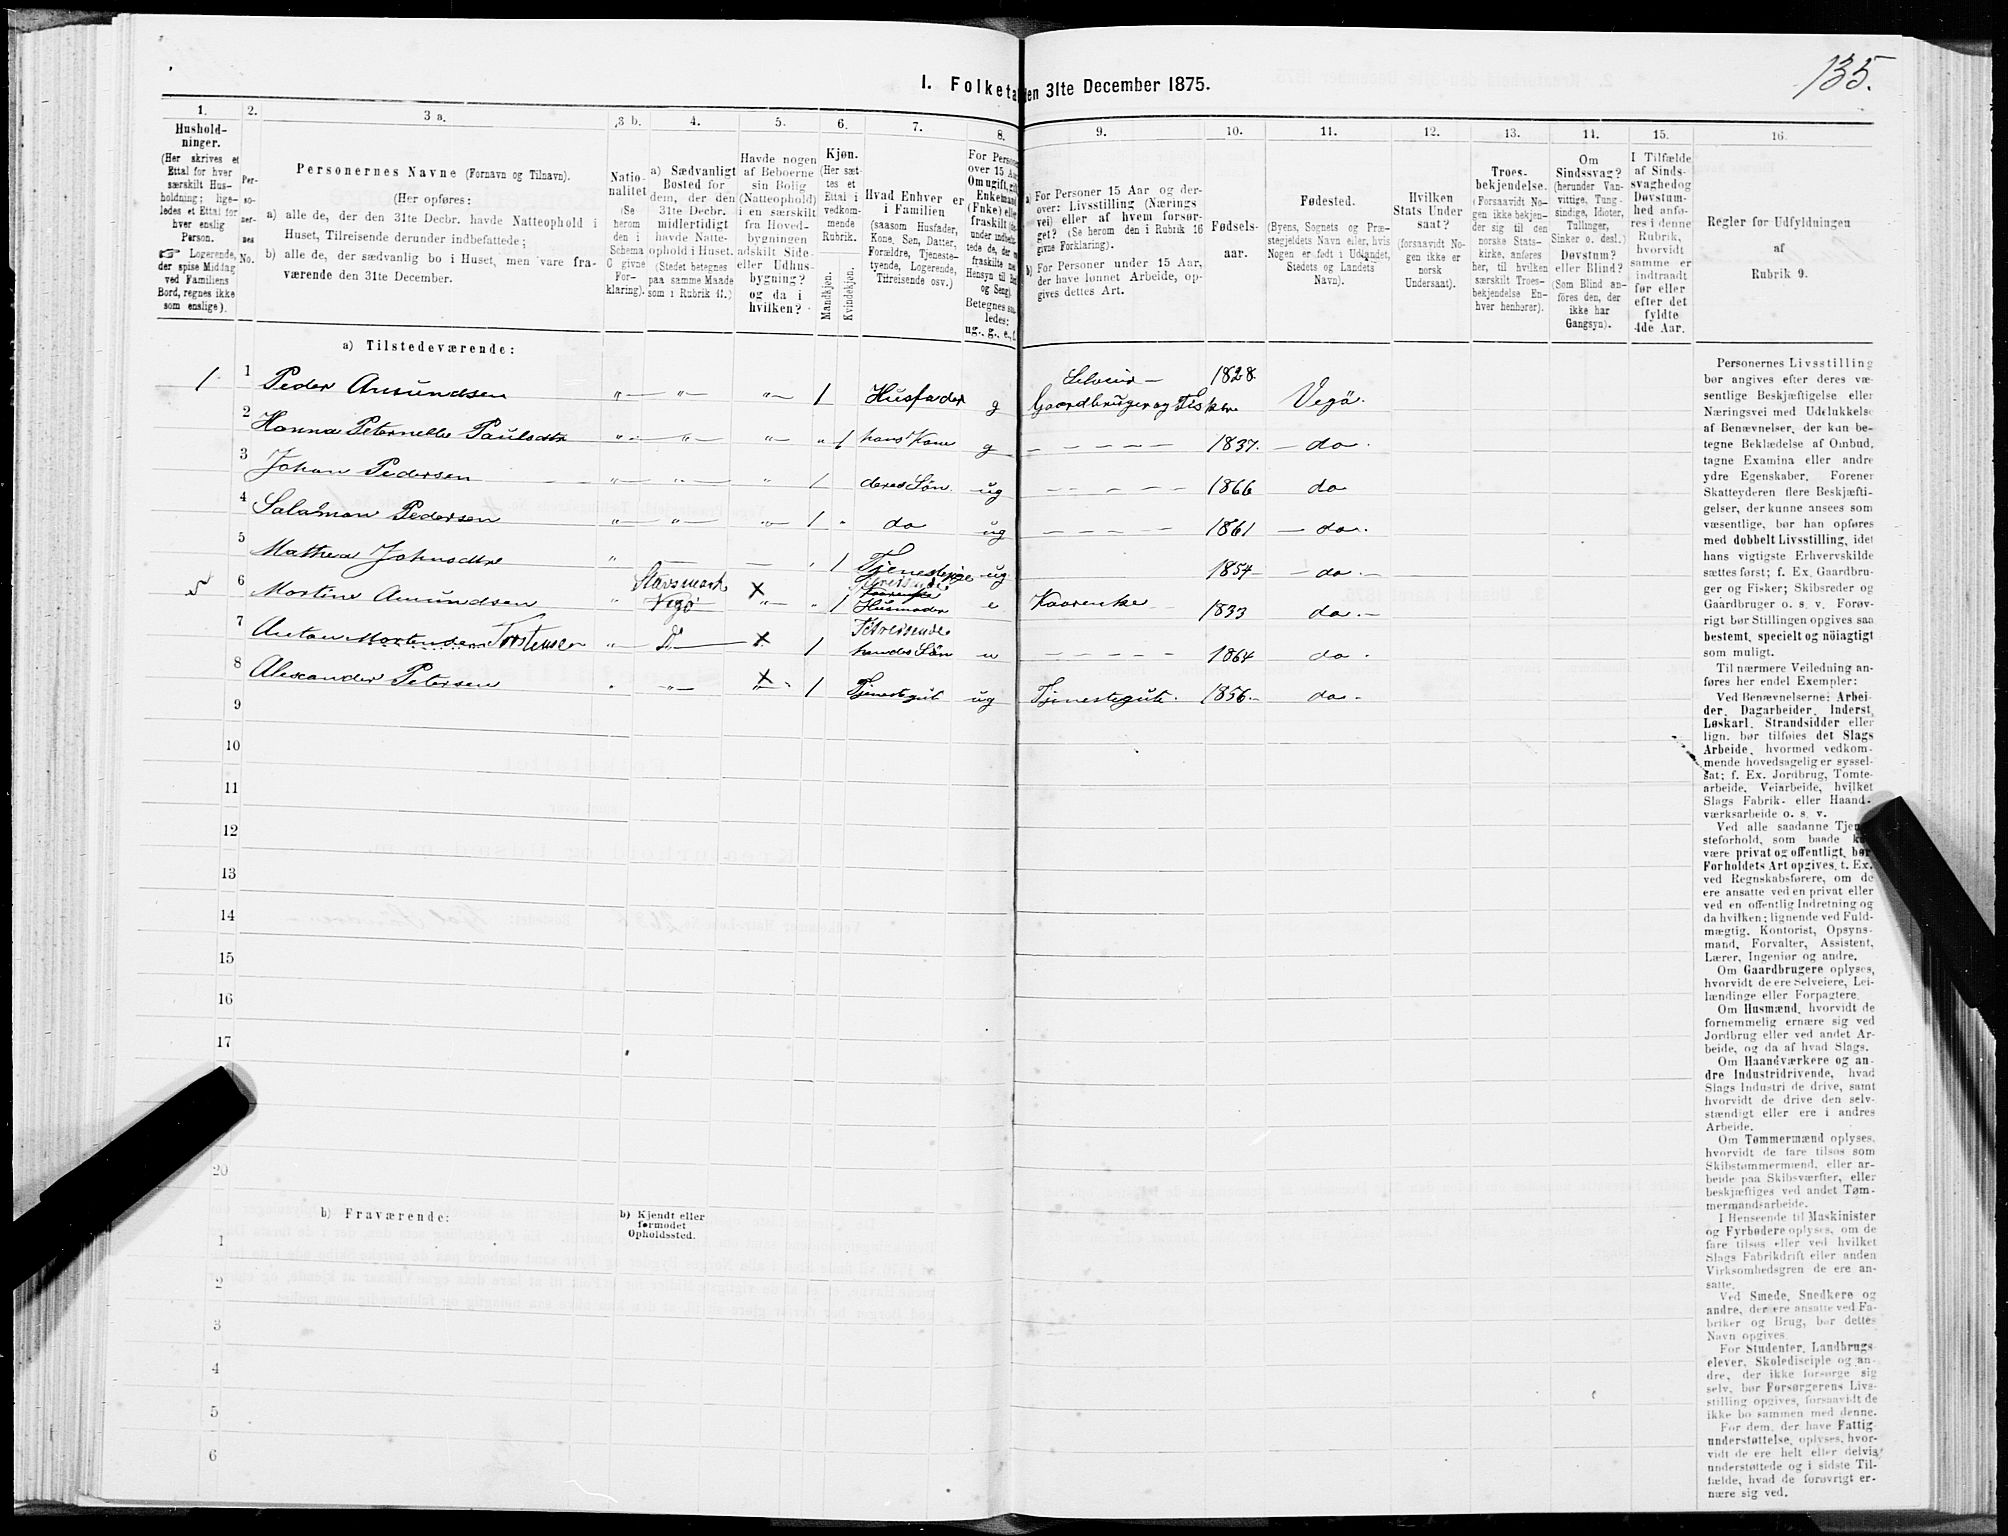 135.
I. Folketa en 31te December 1875.
1. 2. 3 a. 3 b. 4. 5. 6. 7. 8. 9. 10. 11. 12. 13. 14. 15. 16.
Hushold-
ninger.
(Her skrives et
Ettal for hver
særskilt Hus-
holdning; lige-
ledes et Ettal for
hver enslig
Person.
☞ Logerende,
der spise Middag
ved Familiens
Bord, regnes ikke
som enslige).
Per-
so-
ner-
nes
No.
Personernes Navne (Fornavn og Tilnavn).
(Her opføres:
a) alle de, der den 31te Decbr. havde Natteophold i
Huset, Tilreisende derunder indbefattede;
b) alle de, der sædvanlig bo i Huset, men vare fra-
værende den 31te December.
Natio-
nalitet
(Se
herom
den i
Schema
C givne
For-
klaring).
a) Sædvanligt
Bosted for
dem, der den
31te Decbr.
midlertidigt
havde Natte-
ophold i Huset.
(Stedet betegnes
paa samme Maade
som i Rubrik 11.)
Havde nogen
af Beboerne
sin Bolig
(Natteophold)
i en særskilt
fra Hoved-
bygningen
adskilt Side-
eller Udhus-
bygning?
og da i
hvilken?
Kjøn.
(Her sæt-
tes et
Ettal i
vedkom-
mende
Rubrik.
Mandkjøn.
Kvindekjøn.
Hvad Enhver er
i Familien
(saasom Husfader,
Kone, Søn, Datter,
Forældre, Tjeneste-
tyende, Logerende,
Tilreisende osv.)
For Perso
over 15 Aa
Om ugift, gift
Enkemand
(Fnke) elle
fraskilt (de
under indbefa
tede de, der e
fraskilte me
Hensyn til Bo
og Seng).
Betegnes saa-
ledes:
ug., g., e., f.
a) For Personer 15 Aar og der-
over: Livsstilling (Nærings
vei) eller af hvem forsør-
get? (Se herom den i Rubrik 16
givne Forklaring).
b) For Personer under 15 Aar,
der have lønnet Arbeide, op-
gives dettes Art.
Fødsels-
aar.
Fødested.
(Byens, Sognets og Præ-
stegjeldets Navn eller, hvis
Nogen er født i Udlandet,
Stedets og Landets
Navn).
Hvilken
Stats Under
saat?
(forsaavidt No-
gen ikke er
norsk
Undersaat).
Troes-
bekjendelse.
(Forsaavidt No-
gen ikke bekjen-
der sig til den
norske Stats-
kirke, anføres
her, til hvilken
særskilt Troes-
bekjendelse En-
hver henhører).
Om
Sindssvag?
(herunder Van-
vittige, Tung-
sindige, Idioter,
Tullinger,
Sinker o. desl.)
Døvstum?
eller Blind?
(Som Blind an-
føres den, der
ikke har
Gangsyn).
I Tilfælde
af Sinds-
svaghed og
Døvstum-
hed anfø-
res i denne
Rubrik,
hvorvidt
samme er
indtraadt
før eller
efter det
fyldte
4de Aar.
Regler for Udfyldningen
af
Rubrik 9.
a) Tilstedeværende:
1 1 Peder Amundsen " " " 1 Husfader g Selveier Gaardbruger og Fisker 1828 Vegø.
2 Hanna Peternelle Paulsdtr " " " " 1 hans Kone g 1837. do.
3 Johan Pedersen " " " 1 deres Søn ug 1866 do
4 Salamon Pedersen " " " 1 " do ug 1861 do.
5 Mathea Johnsdtr " " 1 Tjenestepige ug 1854 do.
6 Martine Amundsen " Vegø × " " 1 Tilreisende Husmoder e Kaarenke 1833 do.
7 Anton Mortensen Torstensen " D × 1 Tilreisende hendes Søn u 1864 do.
8 Alexander Petersen " " × 1 Tjenestegut ug Tjenestegut. 1856. do.
9
10
11
12
13
14
15
16
17
20
b) Fraværende:
b) Kjendt eller
formodet
Opholdssted.
1
2
3
4
5
6
Personernes Livsstilling
bør angives efter deres væ-
sentlige Beskjæftigelse eller
Næringsvei med Udelukkelse
af Benævnelser, der kun be-
tegne Beklædelse af Ombud,
tagne Examina eller andre
ydre Egenskaber. Forener
Skatteyderen flere Beskjæfti-
gelser, der kunne ansees som
væsentlige, bør han opføres
med dobbelt Livsstilling, idet
hans vigtigste Erhvervskilde
sættes først; f. Ex. Gaardbru-
ger og Fisker; Skibsreder og
Gaardbruger o. s. v. Forøv-
rigt bør Stillingen opgives saa
bestemt, specielt og nöiagtigt
som muligt.
Til nærmere Veiledning an-
føres her endel Exempler:
Ved Benævnelserne: Arbei-
der, Dagarbeider, Inderst,
Løskarl, Strandsidder eller
lign. bør tilføies det Slags
Arbeide, hvormed vedkom-
mende hovedsagelig er syssel-
sat; f. Ex. Jordbrug, Tomte-
arbeide, Veiarbeide, hvilket
Slags Fabrik- eller Haand-
værksarbeide o. s. v.
Ved alle saadanne Tjen
steforhold, som baade k
være privat og offentligt, bør
Forholdets Art opgives, t. Ex.
ved Regnskabsførere, om de
ere ansatte ved en privat eller
ved en offentlig Indretning og
da hvilken; lignende ved Fuld-
mægtig, Kontorist, Opsyns-
mand, Forvalter, Assistent,
Lærer, Ingeniør og andre.
Om Gaardbrugere oplyses,
hvorvidt de ere Selveiere, Lei-
lændinge eller Forpagtere.
Om Husmænd, hvorvidt de
fornemmelig ernære sig ved
Jordbrug eller ved andet Ar-
beide, og da af hvad Slags.
Om Haandværkere og an-
dre Industridrivende, hvad
Slags Industri de drive, samt
hvorvidt de drive den selv-
stændigt eller ere i andres
Arbeide.
Om Tømmermænd oplyses,
hvorvidt de fare tilsøs som
Skibstømmermænd, eller ar-
beide paa Skibsværfter, eller
beskjæftiges ved andet Tøm-
mermandsarbeide.
I Henseende til Maskinister
og Fyrbødere oplyses, om de
fare tilsøs eller ved hvilket
Slags Fabrikdrift eller anden
Virksomhedsgren de ere an-
satte.
Ved Smede, Snedkere og
andre, der ere ansatte ved Fa-
briker og Brug, bør dettes
Navn opgives.
For Studenter, Landbrugs-
elever, Skoledisciple og an-
dre, der ikke forsørge sig
selv, bør Forsørgerens Livs-
stilling opgives, forsaavidt de
ikke bo sammen med denne.
For dem, der have Fattig-
understøttelse, oplyses, hvor-
vidt de ere helt eller delvis
understøttede og i sidste Til-
fælde, hvad de forøvrigt er-
nære sig ved.